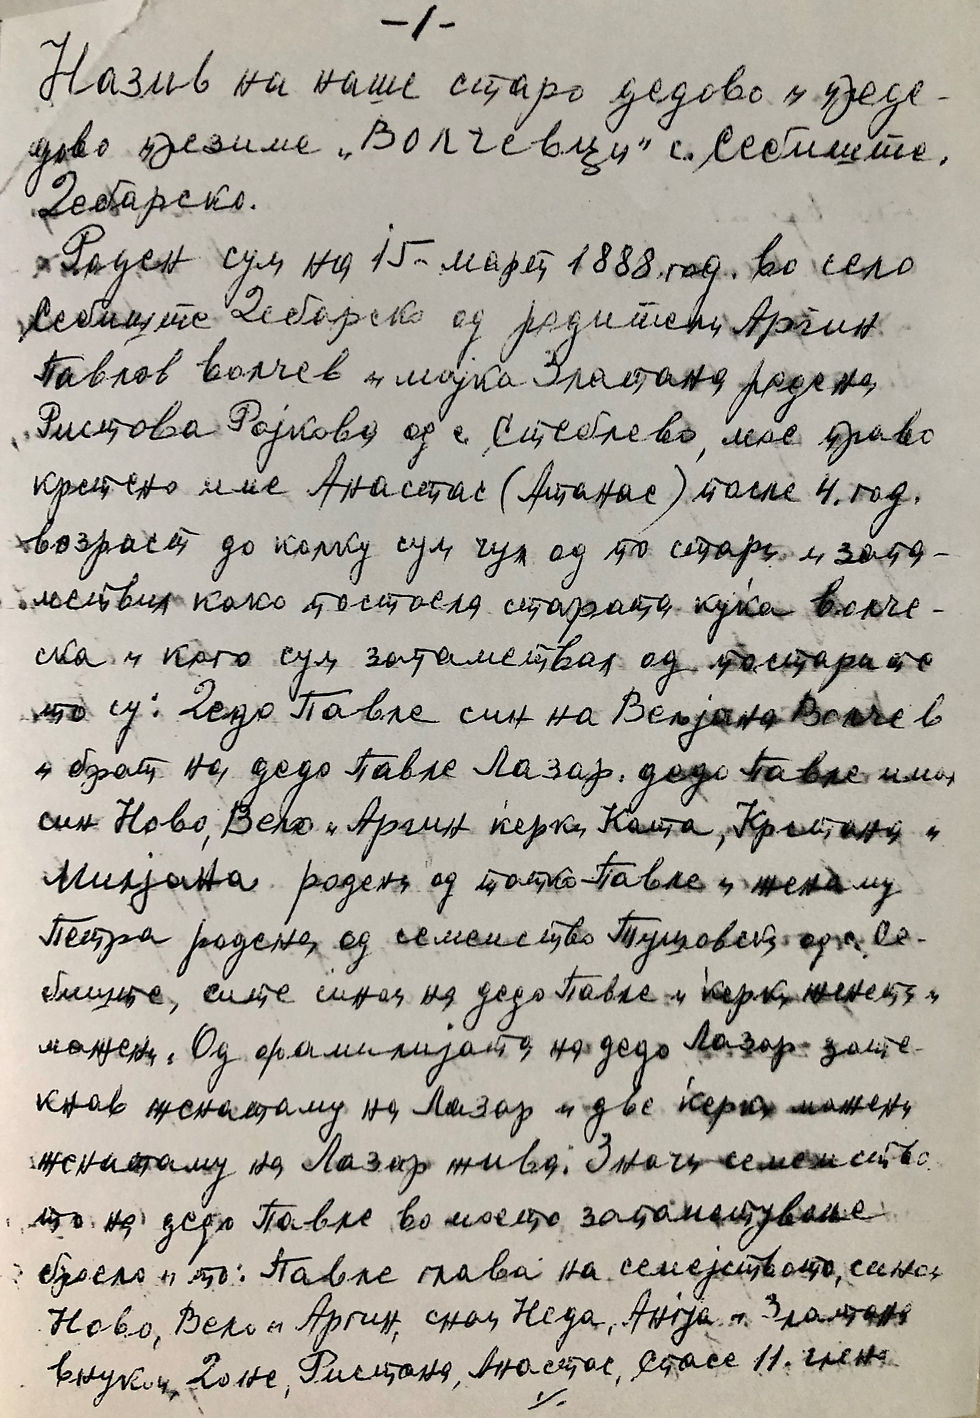 -1-
Назив на наше старо дедово и преде-
дово презиме „Волчевци" с. Себиште.
Дебарско.
Роден сум на 15-март 1888 год. во село
Себиште Дебарско од родители Аргин
Павлов Волчев и мајка Златана родена
Ристова Рајкова од с. Стеблево, мое право
крстено име Анастас (Атанас) после 4. год.
возраст до колку сум чул од по стари и запа-
метвил како постоела старата кука волче-
ска и кого сум запаметвал од постарите
то су: Дедо Павле син на Велјана Волчев
и брат на дедо Павле Лазар. дедо Павле имал
син Ново, Вело и Аргин ќерки Ката, Крстана и
Милјана родени од татко Павле и женаму
Петра родена од семеиство Тушовски од с. Се-
биште, сите синои на дедо Павле и ќерки женети и
мажени. Од фамилијата на дедо Лазар зате-
кнав женатаму на Лазар и две ќерки мажени
женатаму на Лазар жива. Значи семеиство
то на дедо Павле во моето запаметување
броело и то: Павле глава на семејството, синои
Ново, Вело и Аргин, снаи Неда, Анѓа и Златана
внуки, Доне, Ристана, Анастас, Стасе 11. члена
./.